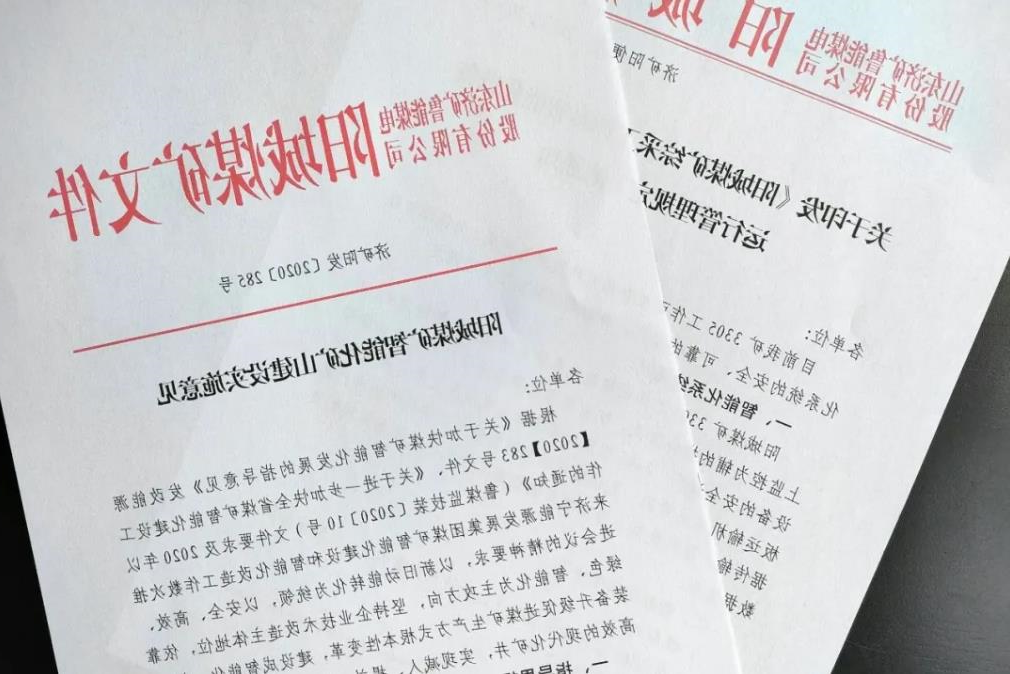 山东济矿鲁能煤电
股份有限公司
阳城煤矿文件
济矿阳发〔2020〕285号
阳城煤矿智能化矿山建设实施意见
各单位：
根据《关于加快煤矿智能化发展的指导意见》发改能源
【2020】283号文件、《关于进一步加快全省煤矿智能化建设工
作的通知》（鲁煤监技装〔2020〕10号）文件要求及2020年以
来济宁能源发展集团煤矿智能化建设和智能化改造工作数次推
进会议的精神要求，以新旧动能转化为统领，以安全、高效、
绿色、智能化为主攻方向，坚持企业技术改造主体地位，依靠
装备升级促进煤矿生产方式根本性变革，建设成智能化
高效的现代化矿井，实现减人、
一、指导思
山东济矿鲁能煤电
股份有限公司
阳城
济矿阳便
关于印发《阳城煤矿综采
运行管理规定
各单位：
目前我矿3305工作面
化系统的安全、可靠的
一、智能化系统
阳城煤矿330
上监控为辅的
设备的安全
板运输机
据传输
数据